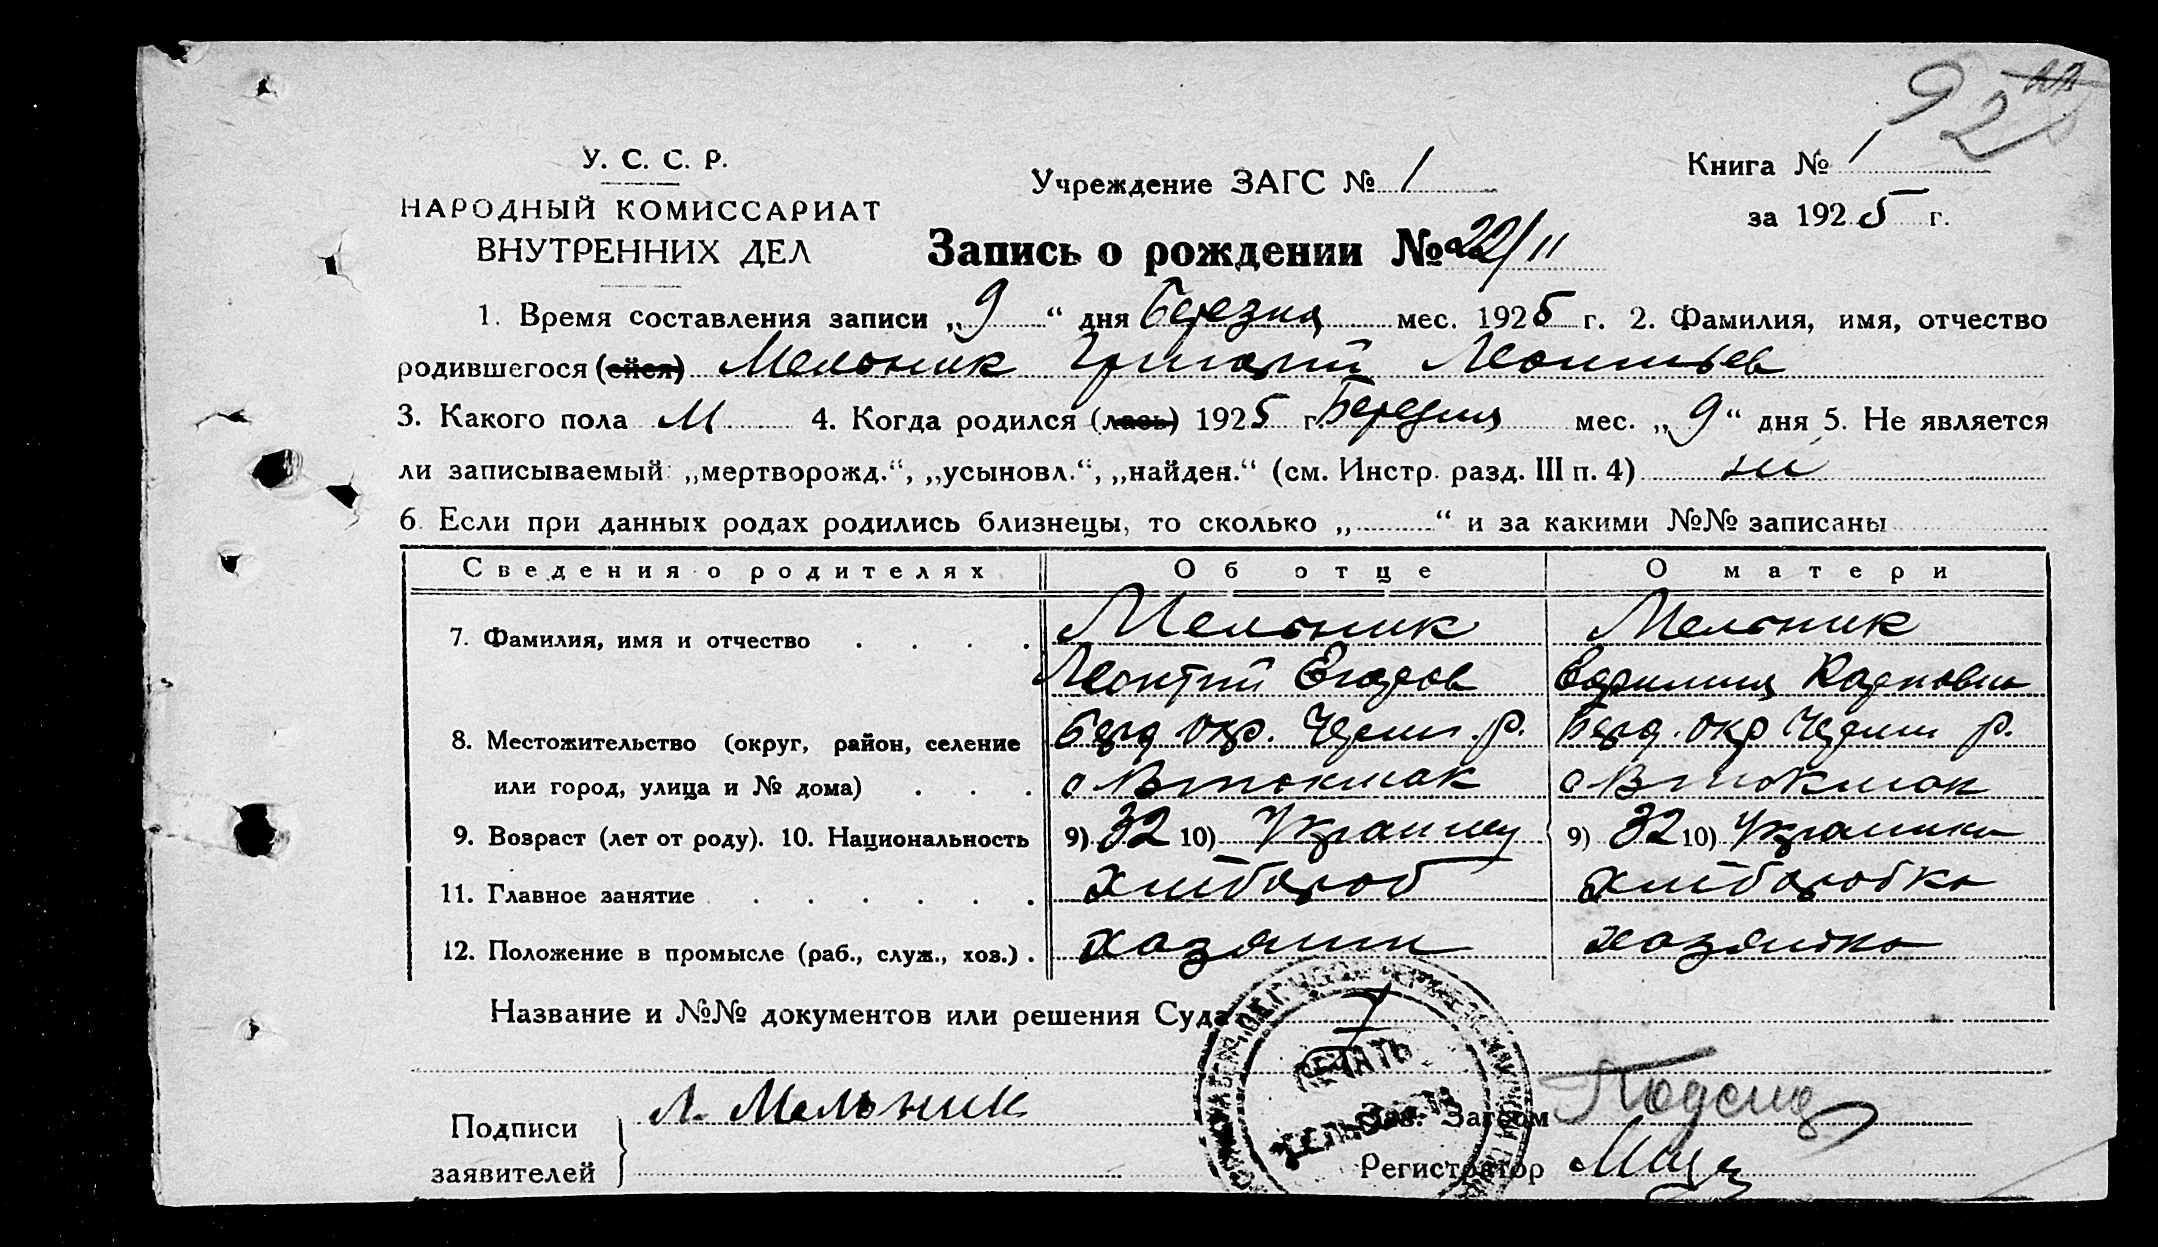 92
У. С. С. Р.
НАРОДНЫЙ КОМИССАРИАТ
ВНУТРЕННИХ ДЕЛ
Учреждение ЗАГС № 1
Книга № 1
за 1925 г.
Запись о рождении № 22/11
1. Время составления записи „9“ дня Березня мес. 1925 г. 2. Фамилия, имя, отчество
родившегося (ейся) Мельник Григорій Леонтьев
3. Какого пола М 4. Когда родился (лась) 1925 г. Березня мес. „9“ дня 5. Не является
ли записываемый: „мертворожд.“, „усыновл.“, „найден.“ (см. Инстр. разд. III п. 4) ні
6. Если при данных родах родились близнецы, то сколько „ “ и за какими №№ записаны
Сведения о родителях Об отце О матери
7. Фамилия, имя и отчество Мельник Мельник
Леонтий Егоров Карповна
8. Местожительство (округ, район, селение Берд. Окр. р. Берд. Окр р.
или город, улица и № дома) с Втокмак с Втокмак
9. Возраст (лет от роду). 10. Национальность 9) 32 10) Украинец 9) 32 10) Украинка
11. Главное занятие хлібороб хліборобка
12. Положение в промысле (раб., служ., хоз.) хазяин хазяйка
Название и №№ документов или решения Суда
ПЕЧАТЬ
Подписи
заявителей
Л. Мельник
Зав. Загсом
Регистратор